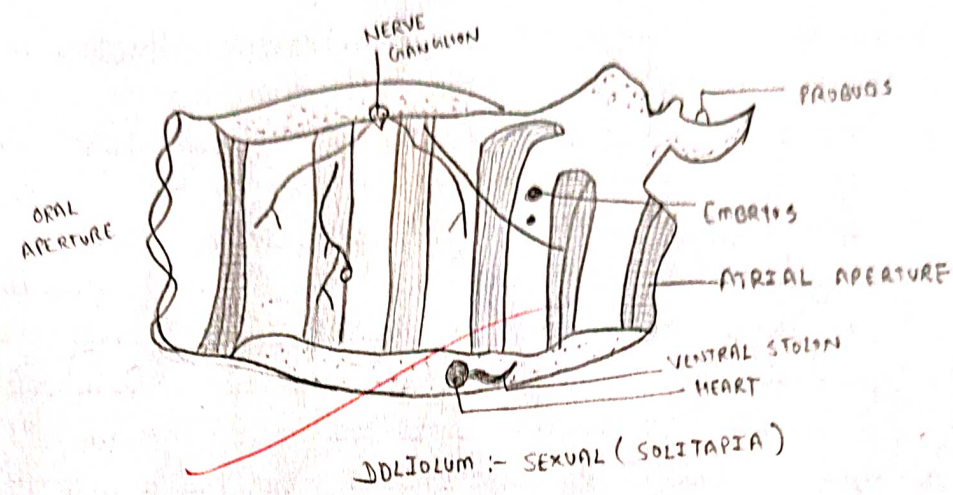 NERVE
GANGLION
PROBUDS
ORAL
APERTURE
EMBRYOS
ATRIAL APERTURE
VENTRAL STOLON
HEART
DOLIOLUM :- SEXUAL (SOLITAPIA)